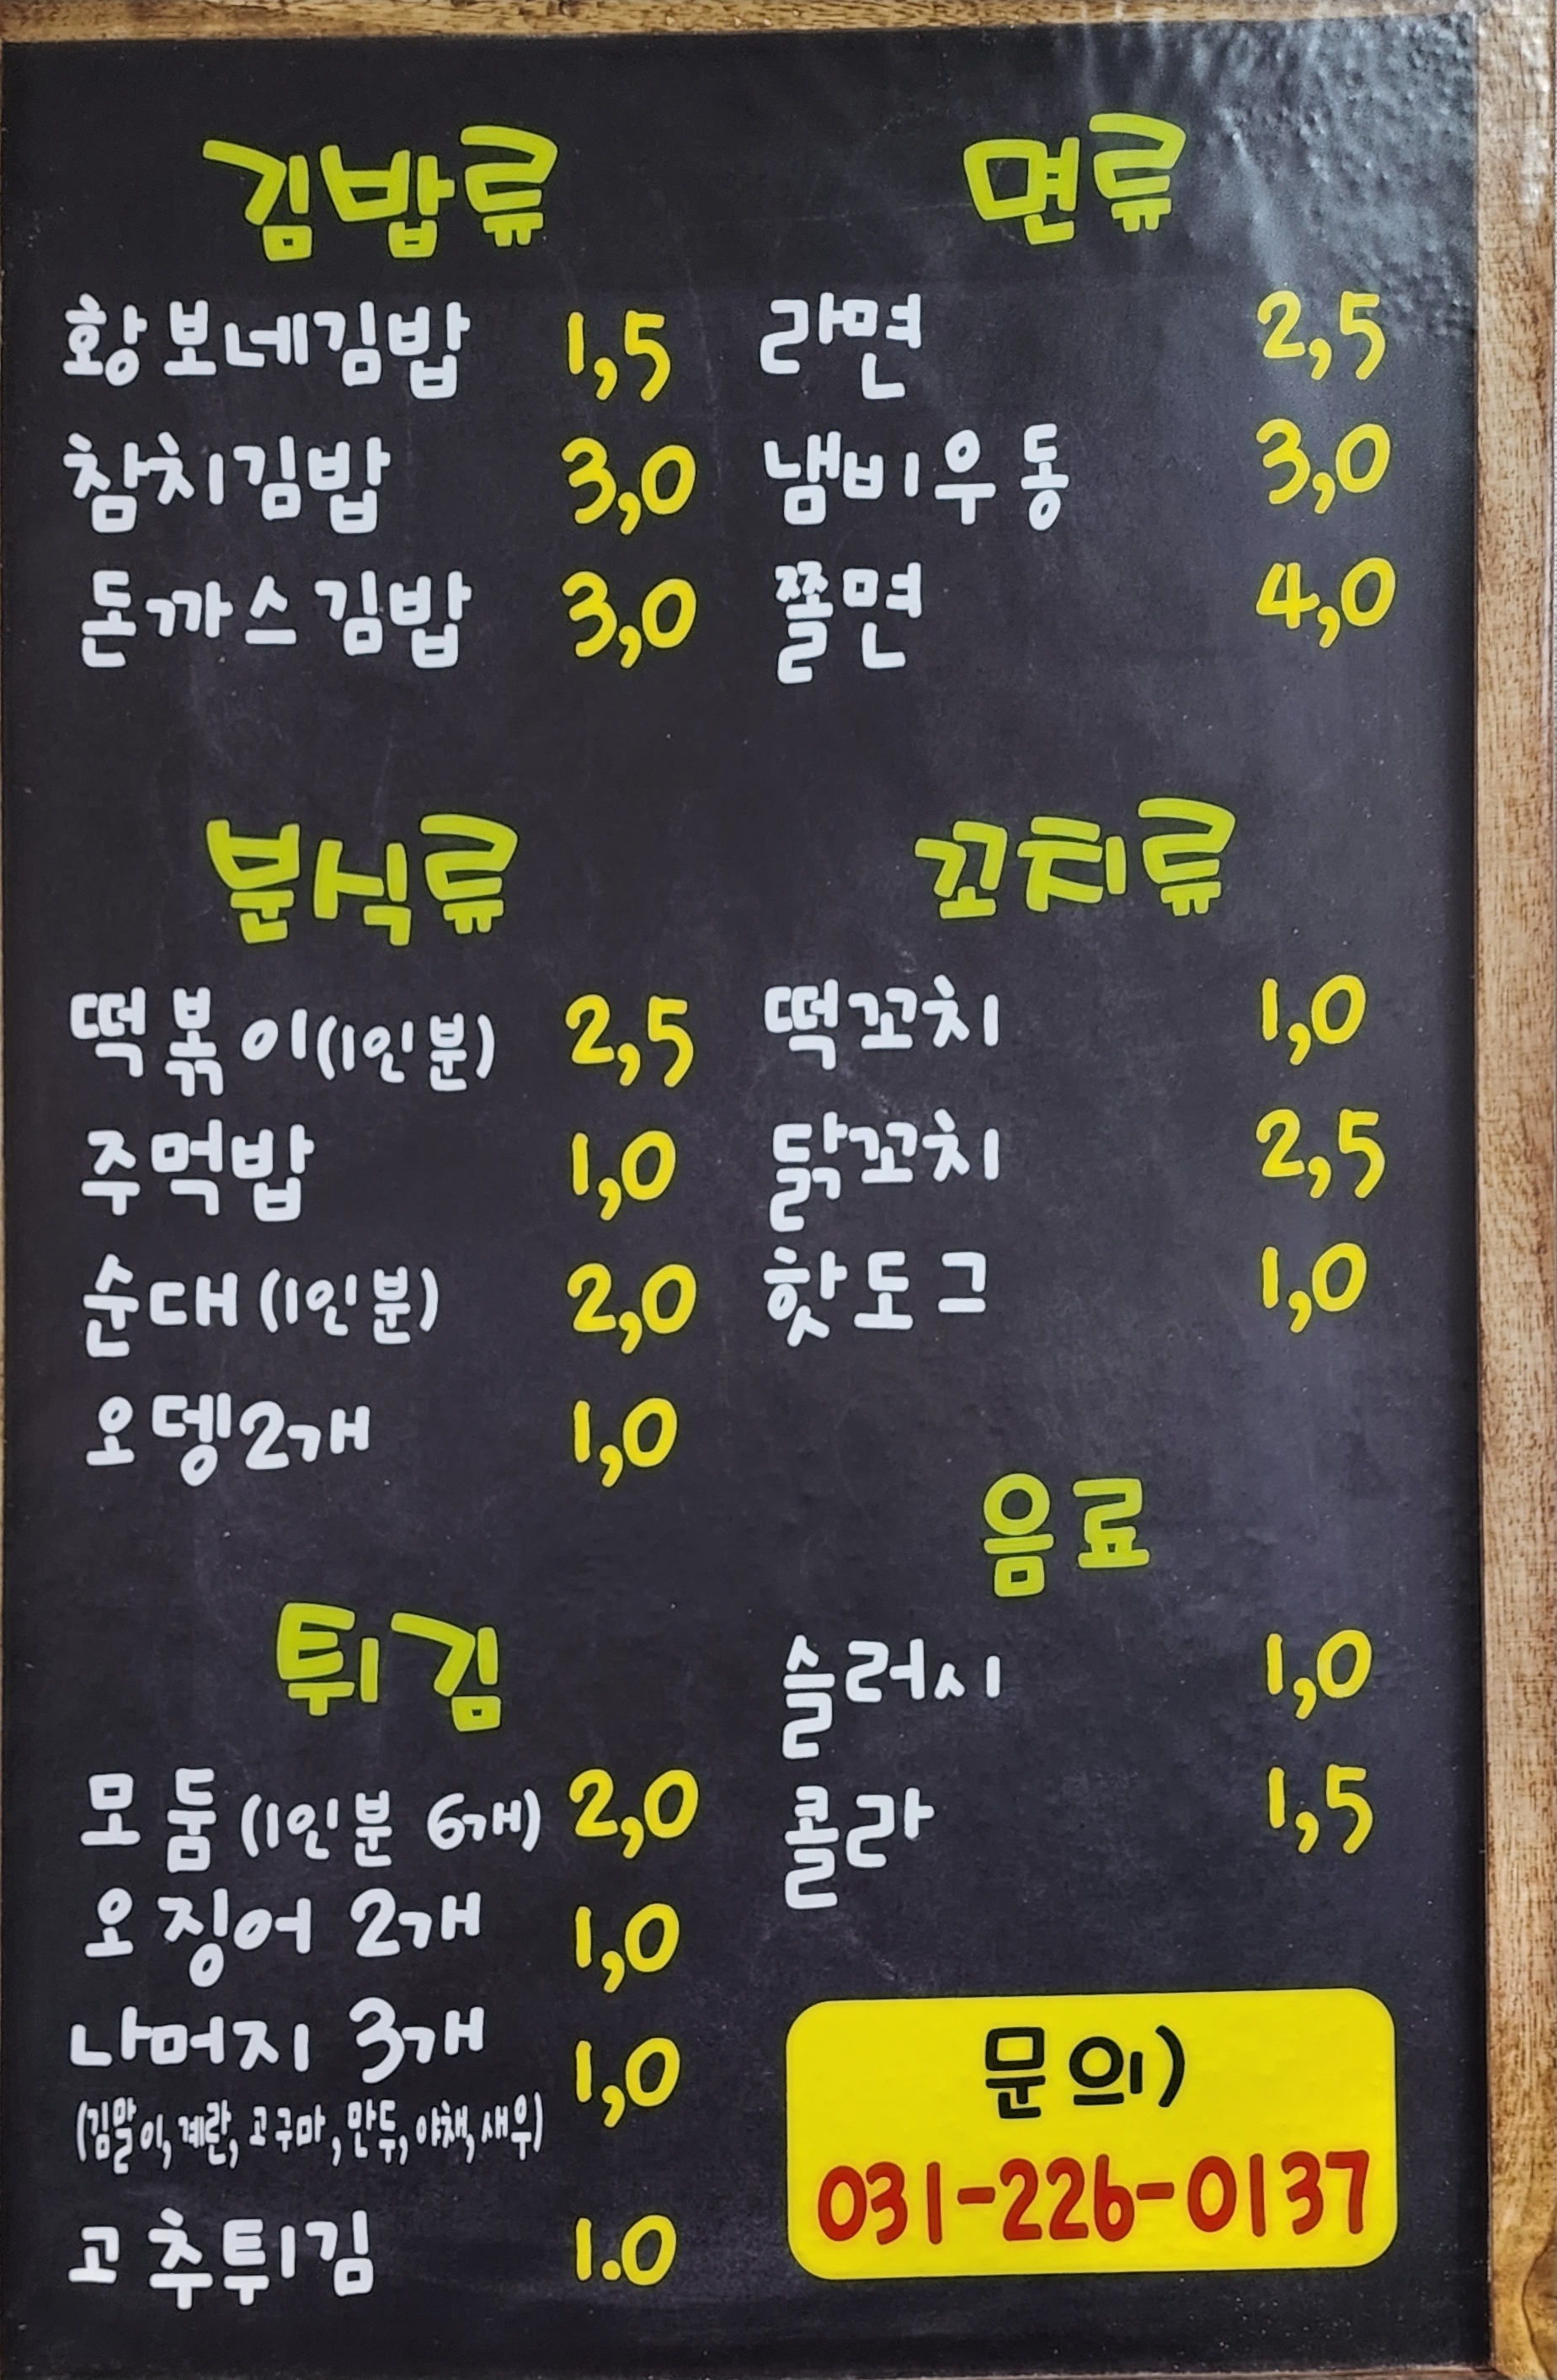 김밥류
황보네김밥 1,5
참치김밥 3,0
돈까스김밥 3,0
면류
라면 2,5
냄비우동 3,0
쫄면 4,0
분식류
떡볶이(1인분) 2,5
주먹밥 1,0
순대(1인분) 2,0
오뎅2개 1,0
꼬치류
떡꼬치 1,0
닭꼬치 2,5
핫도그 1,0
튀김
모둠(1인분 6개) 2,0
오징어 2개 1,0
나머지 3개 1,0
(김말이, 계란, 고구마, 만두, 야채, 새우)
고추튀김 1.0
음료
슬러시 1,0
콜라 1,5
문의)
031-226-0137